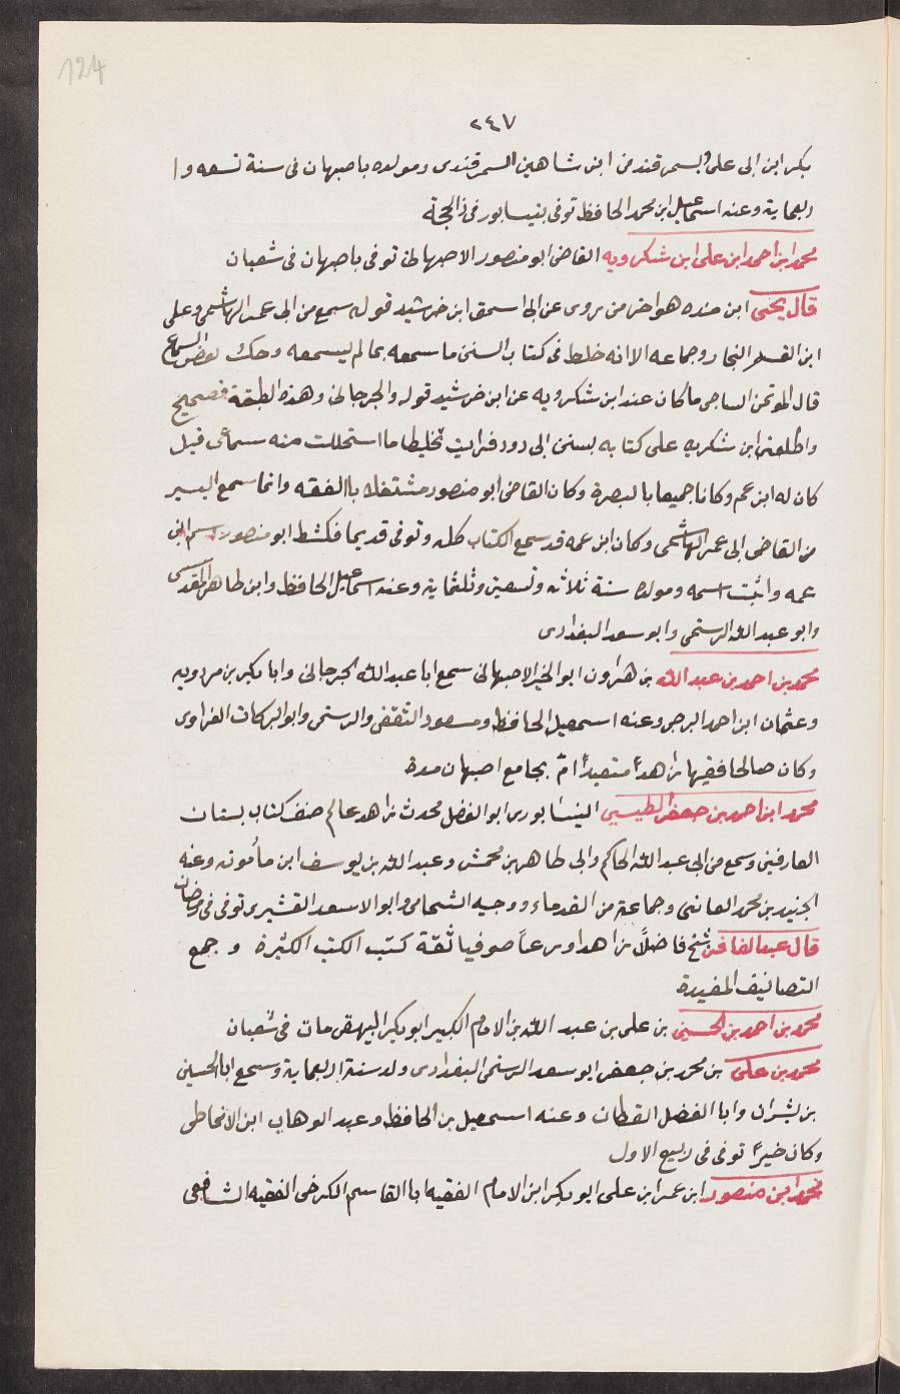 124
٢٤٧
بكر ابن ابى على والسمرقندى ابن شاهين السمرقندى ومولده باصبهان فى سنة تسعه وا
ربعماية وعنه اسماعيل ابن محمد الحافظ توفى بنيسابور فى ذالحجة
محمد ابن احمد ابن على ابن شكرويه القاضى ابو منصور الاصبهانى توفى باصبهان فى شعبان
قال يحيى ابن منده هو اخر من يروى عن ابى اسحق ابن خرشيد قوله سمع من ابى عمر الهاشمى وعلى
ابن القسم النجار وجماعه الا انه خلط فى كتاب السنن ما سمعه بما لم يسمعه وحك بعض السماع
قال الموتمن الساجى ما كان عند ابن شكرويه عن ابن خرشيد قوله والجرجانى وهذه الطبقة فصحيح
واطلعنى ابن شكريه على كتابه بسنن ابى دود فرايت تخليطا ما استحللت منه سماعى قيل
كان له ابن عم وكانا جميعا بالبصرة وكان القاضى ابو منصور مشتغلا باالفقه وانما سمع اليسير
من القاضى ابى عمر الهاشمى وكان ابن عمه قد سمع الكتاب كله وتوفى قديما فكشط ابو منصور اسم ابن
عمه واثبت اسمه ومولده سنة ثلاثه وتسعين وثلثماية وعنه اسماعيل الحافظ وابن طاهر المقدسى
وابو عبد الله الرستمى وابو سعد البغدادى
محمد بن احمد بن عبد الله بن هرون ابو الخير الاصبهانى سمع ابا عبد الله الجرجانى وابا بكر بن مردويه
وعثمان ابن احمد البرجى وعنه اسمعيل الحافظ ومسعود الثقفى والرستمى وابو البركات الفراوى
وكان صالحا فقيها زاهدًا متعبدًا امّ بجامع اصبهان مدة
محمد ابن احمد بن جعفر الطبسى النيسابورى ابو الفضل محدث زاهد عالم صنف كتاب بستان
العارفين وسمع من ابى عبد الله الحاكم وابى طاهر بن محمش وعبد الله بن يوسف ابن مأمونه وعنه
الجنيد بن محمد القاننى وجماعة من القدماء ووجيه الشحامى وابو الاسعد القشيرى توفى فى رمضان
قال عبد الغافر شيخ فاضلًا زاهدا ورعًا صوفيا ثقة كتب الكتب الكثيرة وجمع
التصانيف المفيدة
محمد بن احمد بن الحسين بن على بن عبد الله بن الامام الكبير ابو بكر البيهقى مات فى شعبان
محمد بن على بن محمد بن جعفر ابو سعد الرستمى البغدادى ولد سنة اربعماية وسمع ابا الحسين
بن بشران وابا الفضل القطان وعنه اسمعيل بن الحافظ وعبد الوهاب ابن الانماطى
وكان خيرًا توفى فى ربيع الاول
محمد ابن منصور ابن عمر ابن على ابو بكر ابن الامام الفقيه ابا القاسم الكرخى الفقيه الشافعى